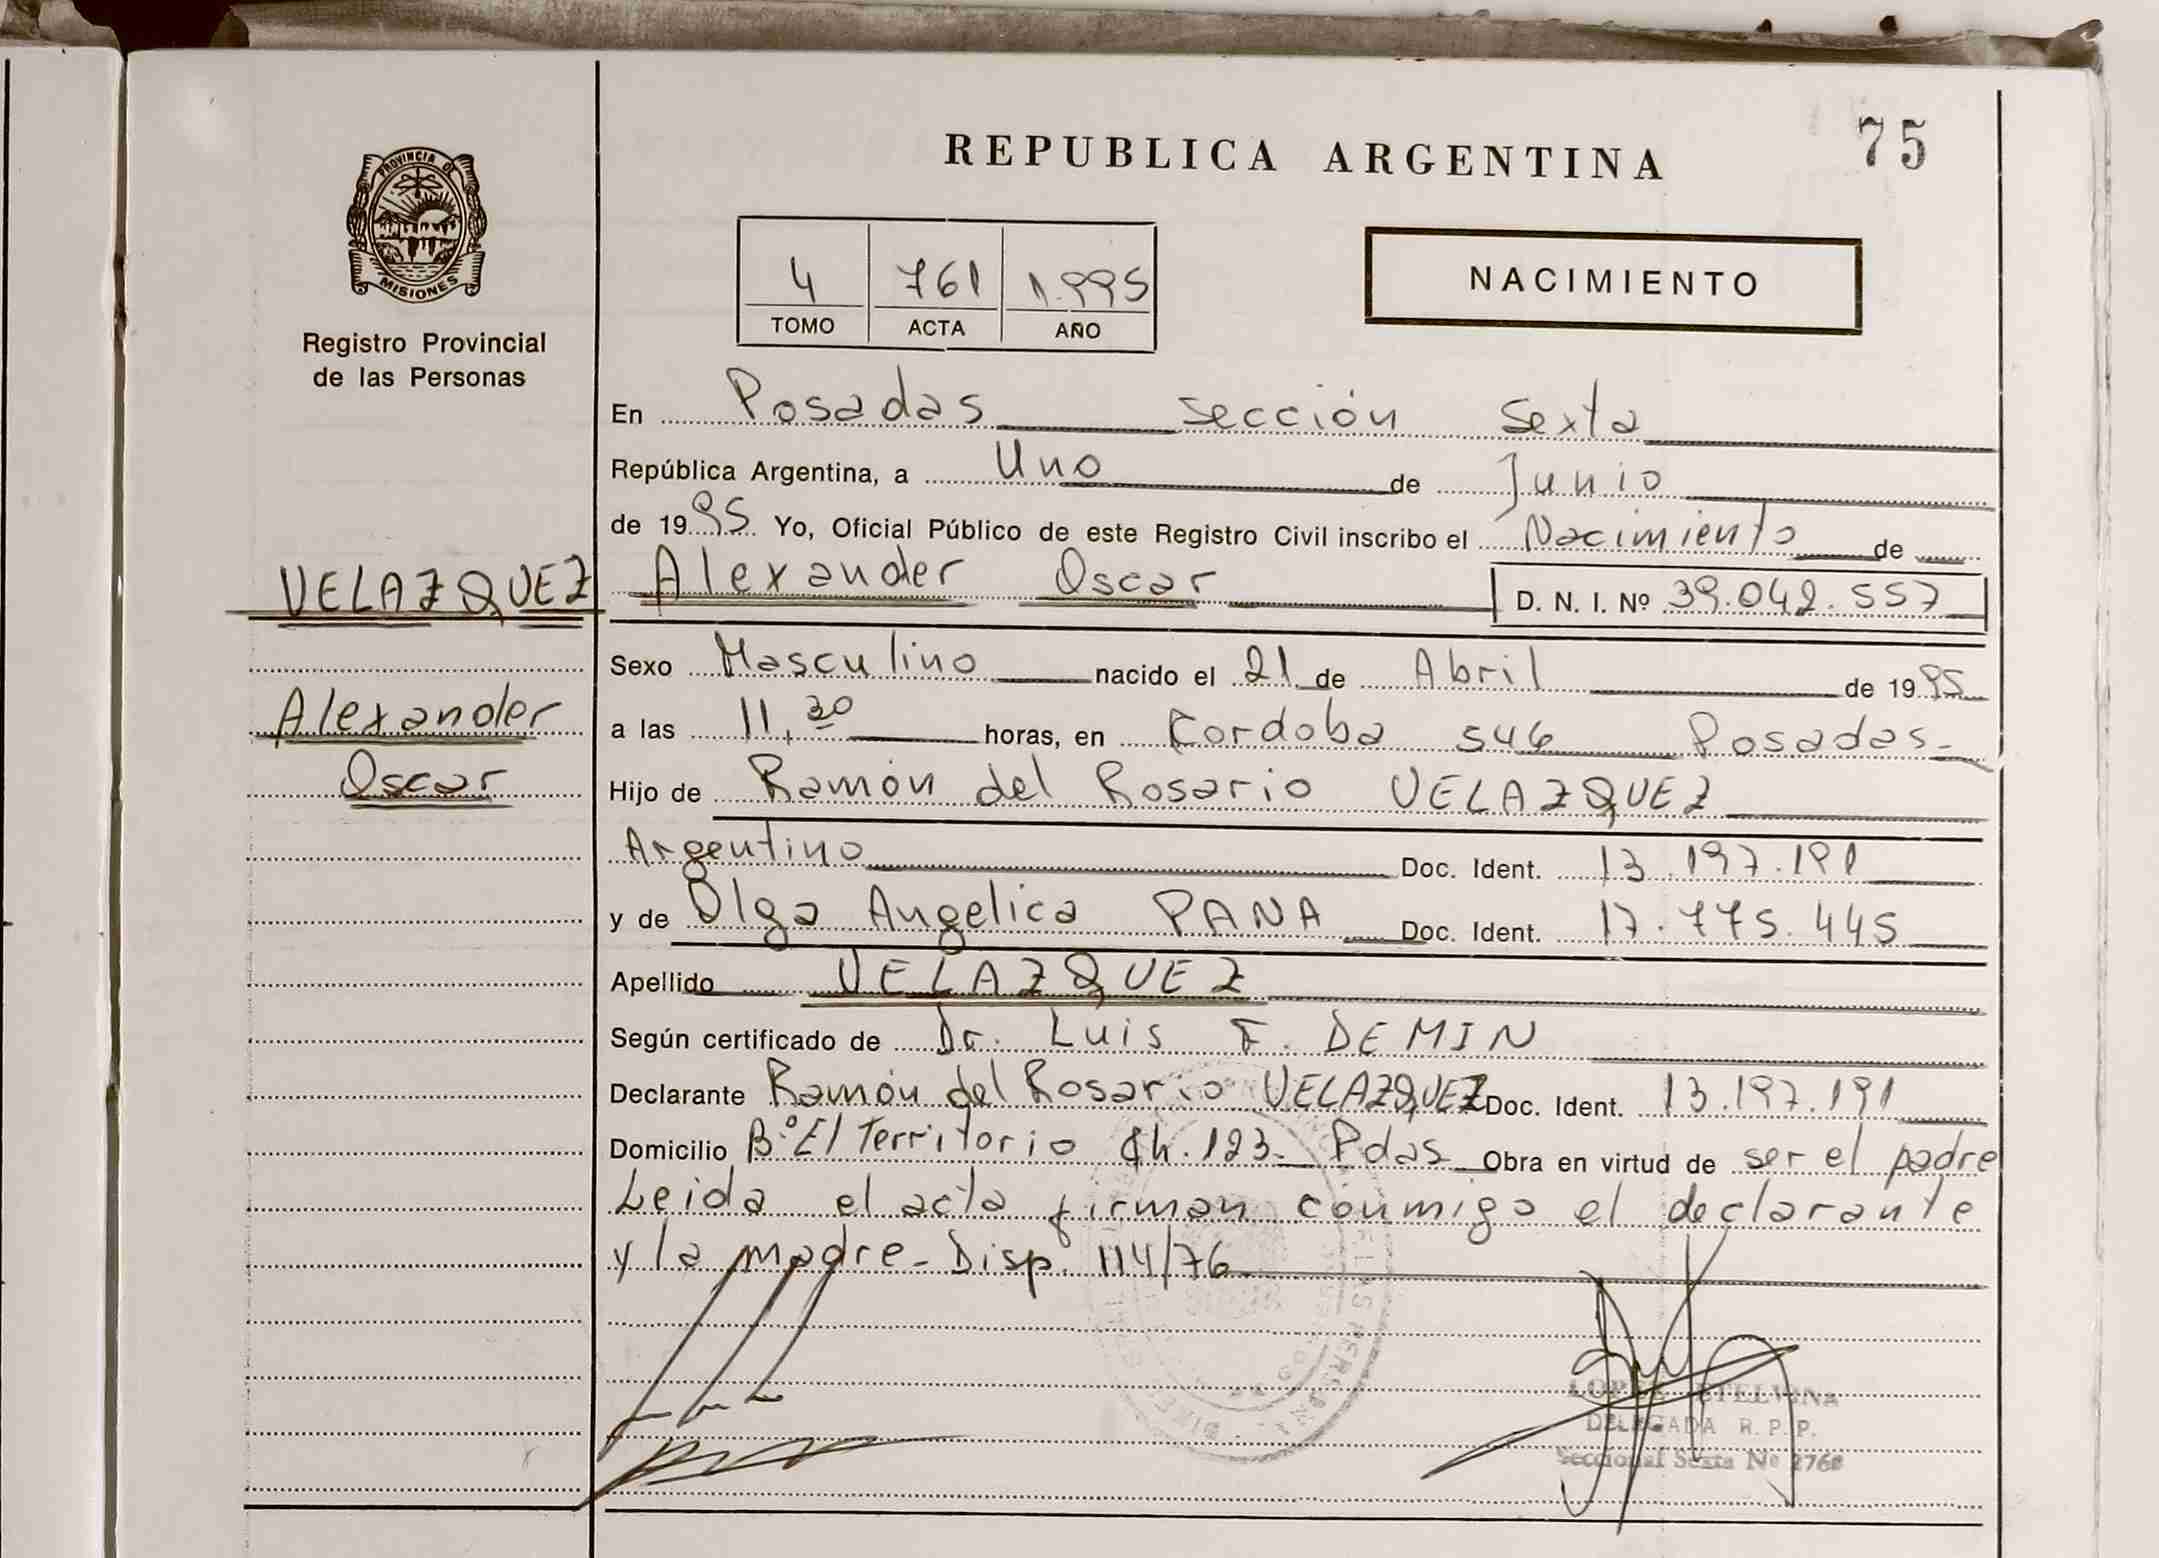 REPUBLICA ARGENTINA
75
PROVINCIA DE
MISIONES
Registro Provincial
de las Personas
4 761 1.995
TOMO ACTA AÑO
NACIMIENTO
En Posadas sección Sexta
República Argentina, a Uno de Junio
de 1995 Yo, Oficial Público de este Registro Civil inscribo el Nacimiento de
VELAZQUEZ
Alexander Oscar D. N. I. Nº 39.042.557
Sexo Masculino nacido el 21 de Abril de 1995
Alexander
a las 11,30 horas, en Cordoba 546 Posadas
Oscar
Hijo de Ramón del Rosario VELAZQUEZ
Argentino Doc. Ident. 13.197.191
y de Olga Angelica PANA Doc. Ident. 17.775.445
Apellido VELAZQUEZ
Según certificado de Dr. Luis F. DEMIN
Declarante Ramón del Rosario VELAZQUEZ Doc. Ident. 13.197.191
Domicilio Bº El Territorio Ch. 123- Pdas Obra en virtud de ser el padre
Leida el acta firman conmigo el declarante
y la madre- Disp. 114/76
LOPEZ ETELVINA
DELEGADA R. P. P.
Seccional Sexta Nº